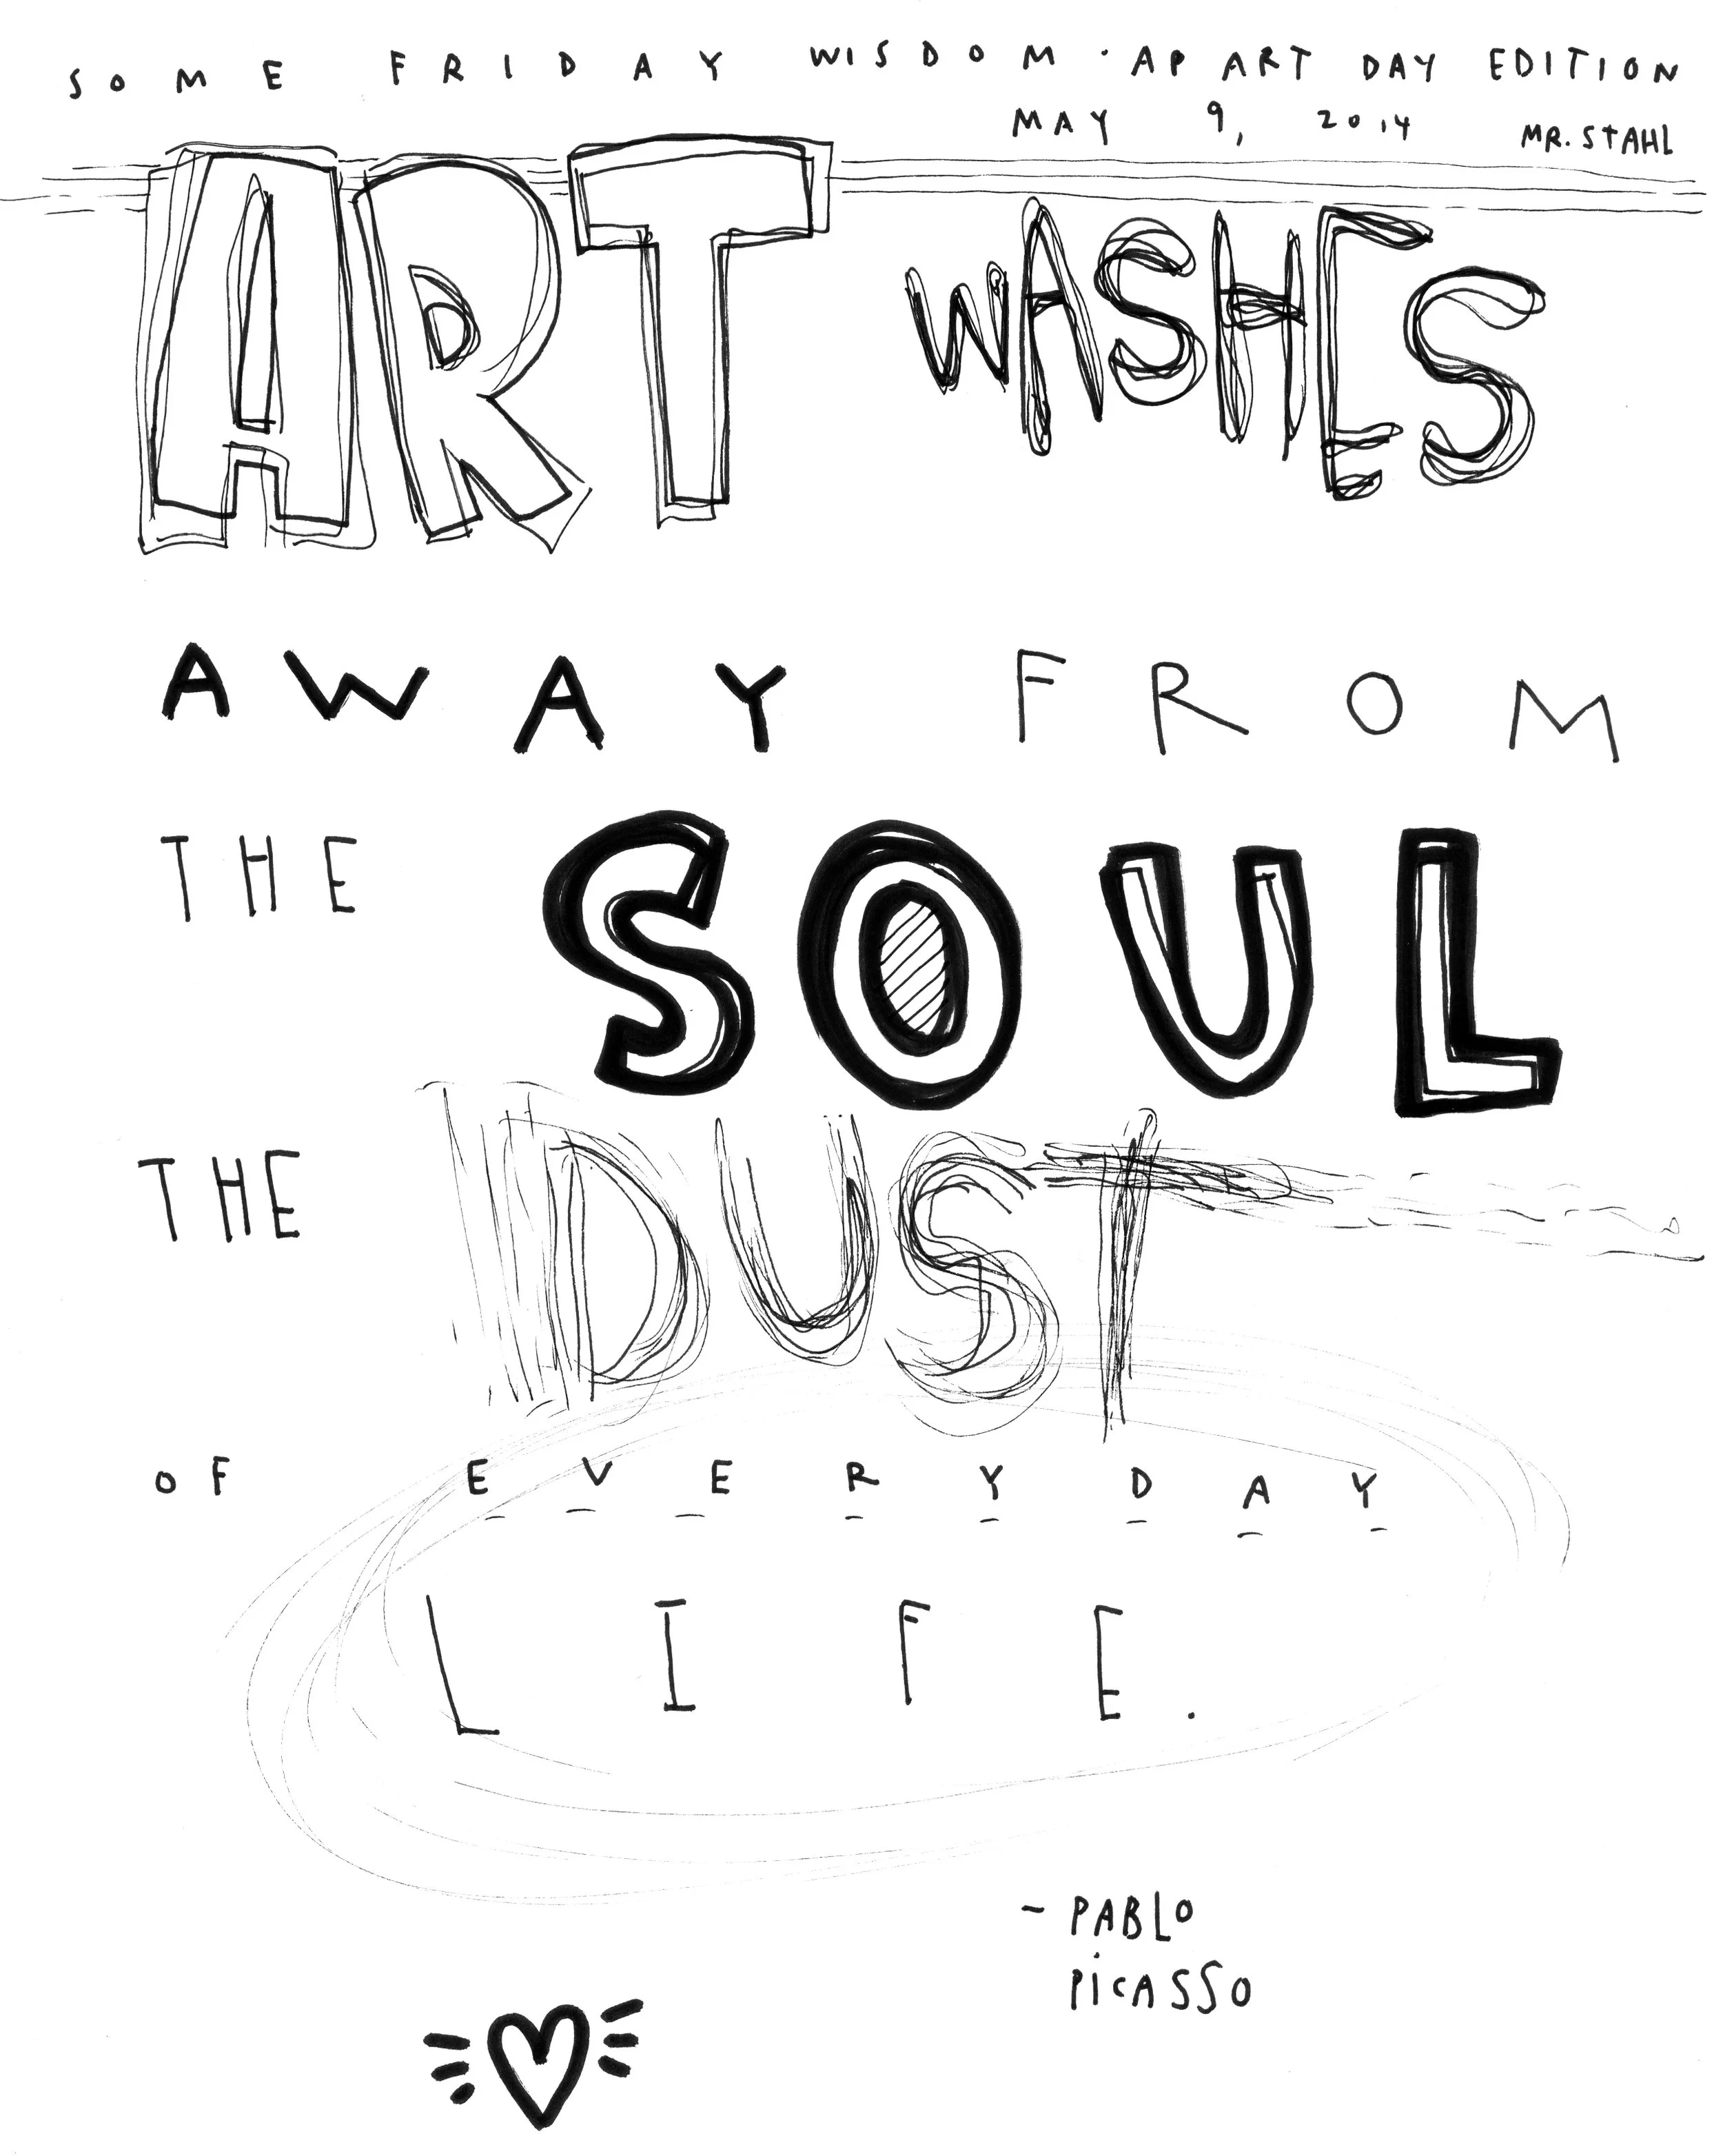 SOME FRIDAY WISDOM · AP ART DAY EDITION
MAY 9, 2014 MR. STAHL
ART WASHES
AWAY FROM
THE SOUL
THE DUST
OF EVERYDAY
LIFE.
- PABLO
PiCASSO